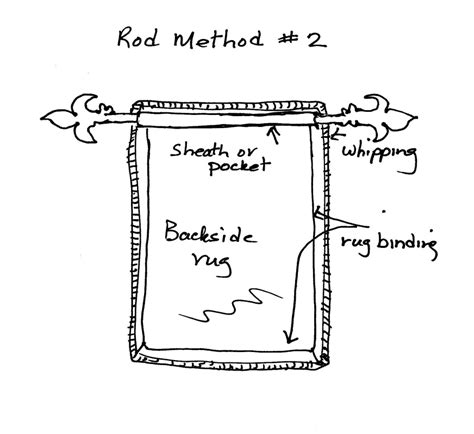 Rod Method # 2
Sheath or
pocket
whipping
Backside
rug
rug binding